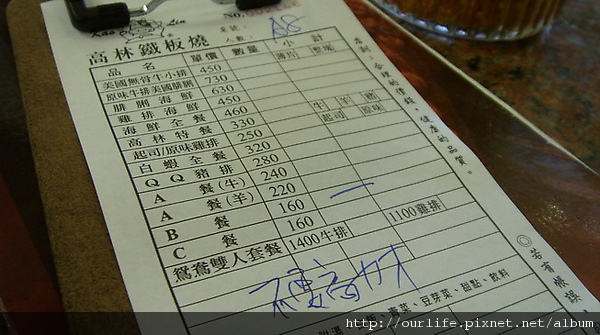 Kao Lin
NO.
桌號：A8
人數：
高林鐵板燒
品名 單價 數量 小計
薄片 整塊
美國無骨牛小排 450
原味牛排美國腓脷 730
腓脷海鮮 630
雞排海鮮 450
海鮮全餐 460 牛 羊 豬
高林特餐 330 起司 原味
起司/原味雞排 250
白蝦全餐 320
QQ豬排 280
A餐(牛) 240
A餐(羊) 220
B餐 160
C餐 160
鴛鴦雙人套餐 1400牛排 1100雞排
麥菜、豆芽菜、甜點、飲料
店訓：合理的價錢，健康的品質。
◎若有帳誤
http://ourlife.pixnet.net/album